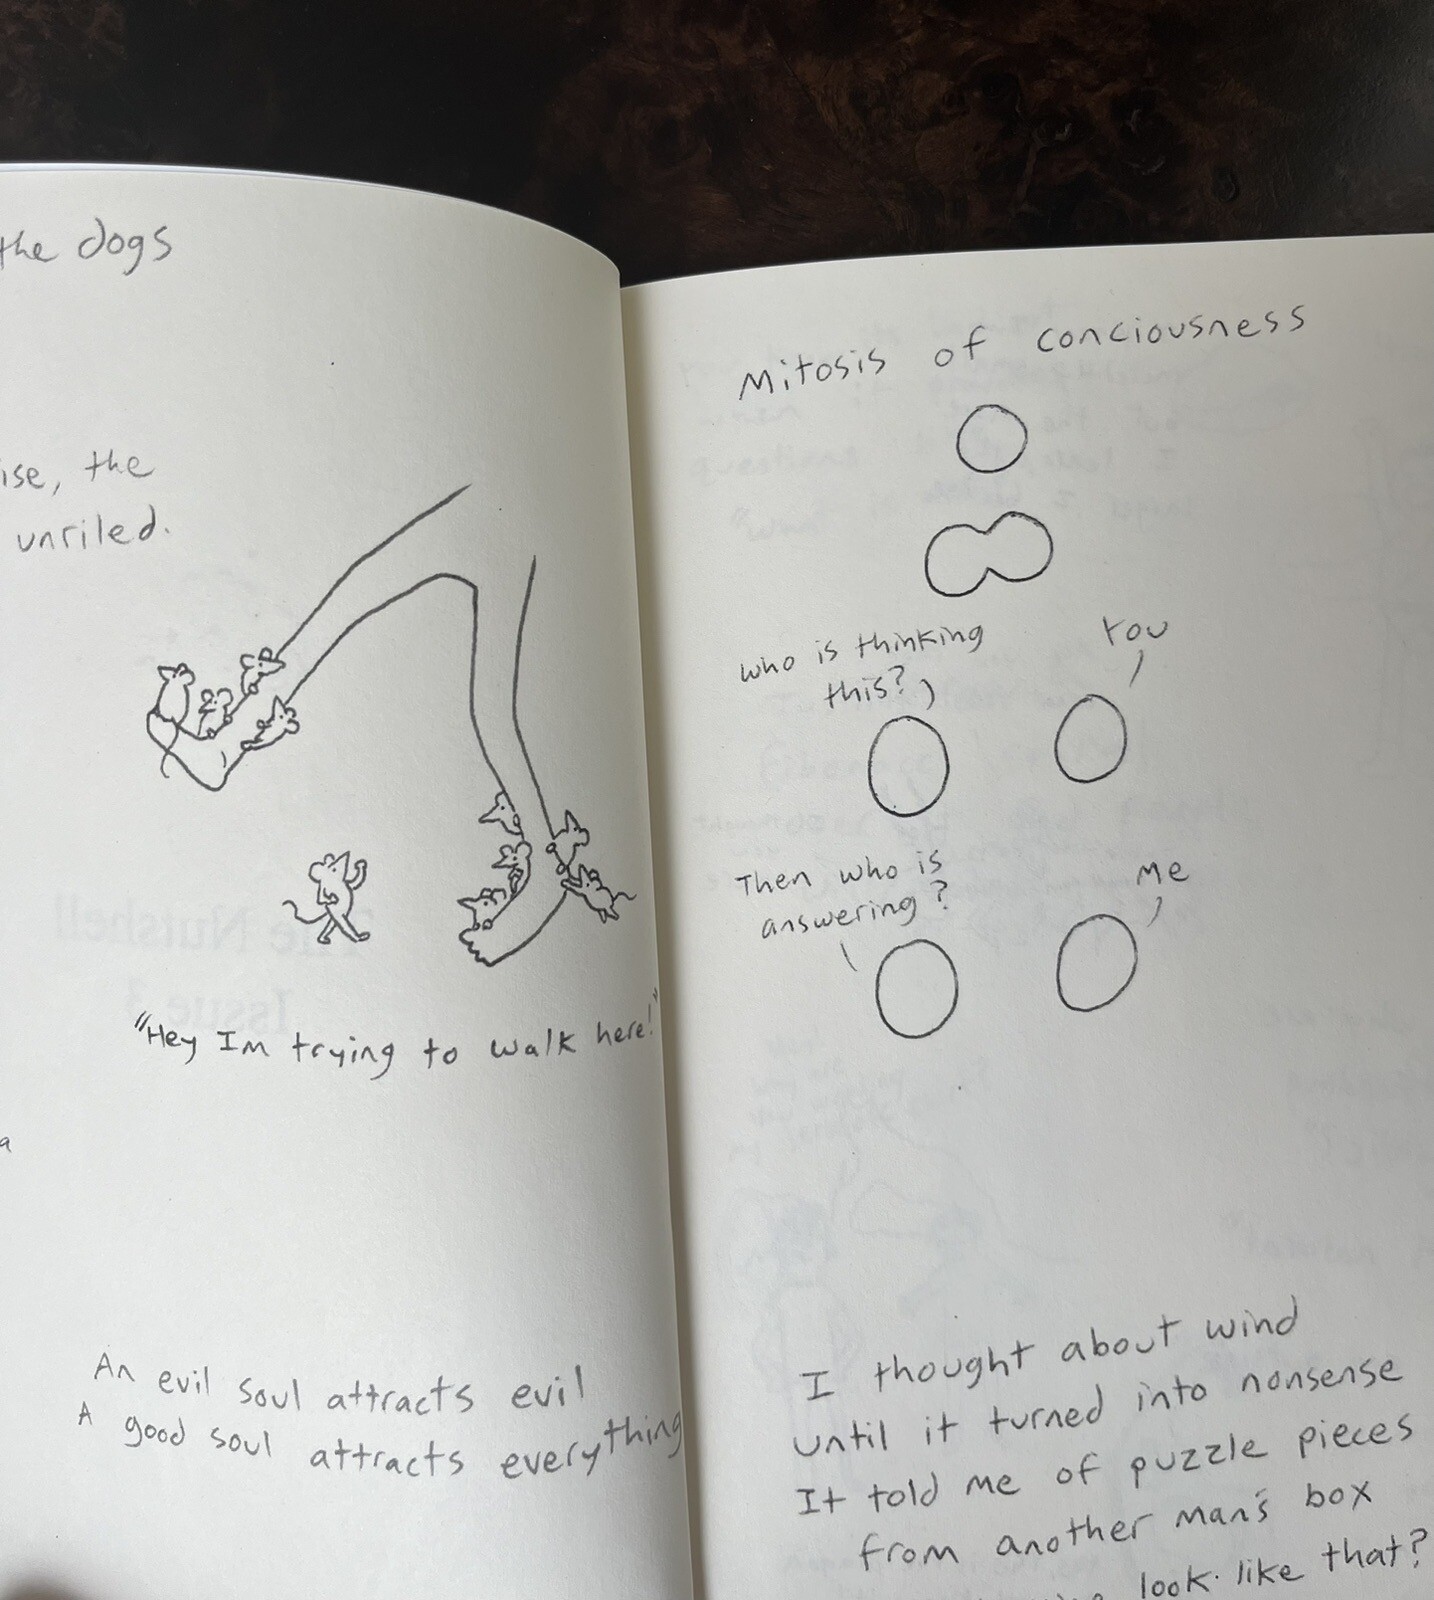 the dogs
ise, the
unriled.
"Hey Im trying to walk here!"
a
An evil soul attracts evil
A good soul attracts everything
Mitosis of conciousness
who is thinking
this?
You
Then who is
answering?
Me
I thought about wind
until it turned into nonsense
It told me of puzzle pieces
from another man's box
look like that?
The Nutshell
Issue 3